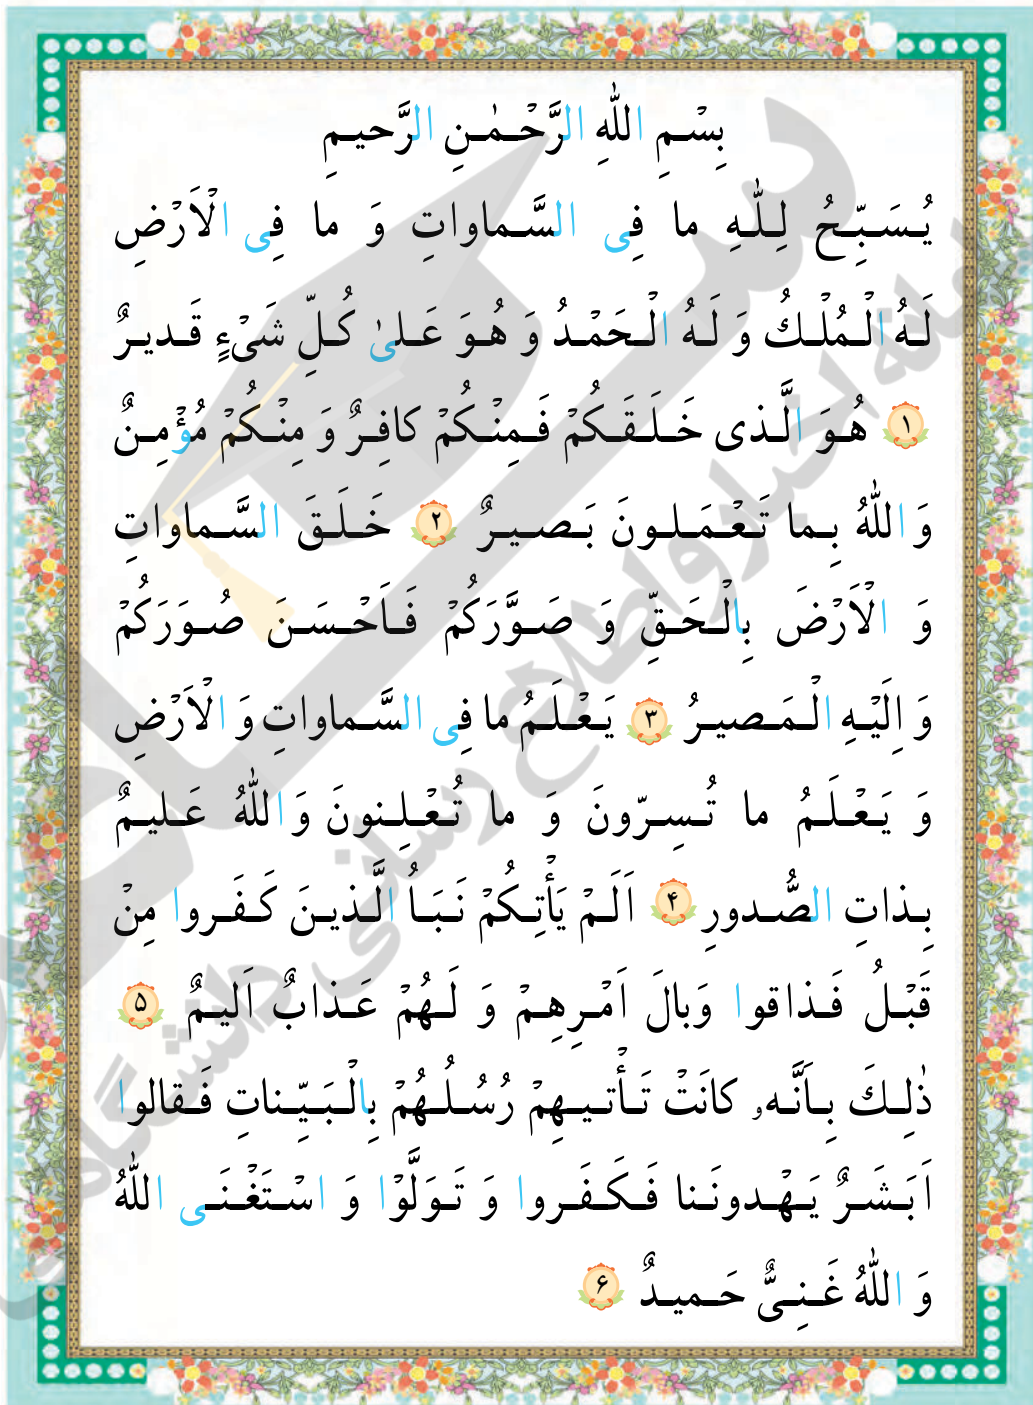 بِسْمِ اللّٰهِ الرَّحْمٰنِ الرَّحيمِ
يُسَبِّحُ لِلّٰهِ ما فِی السَّماواتِ وَ ما فِی الْاَرْضِ
لَهُ الْمُلْكُ وَ لَهُ الْحَمْدُ وَ هُوَ عَلیٰ كُلِّ شَیْءٍ قَديرٌ
۱ هُوَ الَّذی خَلَقَكُمْ فَمِنْكُمْ كافِرٌ وَ مِنْكُمْ مُؤْمِنٌ
وَ اللّٰهُ بِما تَعْمَلونَ بَصيرٌ ۲ خَلَقَ السَّماواتِ
وَ الْاَرْضَ بِالْحَقِّ وَ صَوَّرَكُمْ فَاَحْسَنَ صُوَرَكُمْ
وَ اِلَيْهِ الْمَصيرُ ۳ يَعْلَمُ ما فِی السَّماواتِ وَ الْاَرْضِ
وَ يَعْلَمُ ما تُسِرّونَ وَ ما تُعْلِنونَ وَ اللّٰهُ عَليمٌ
بِذاتِ الصُّدورِ ۴ اَلَمْ يَأْتِكُمْ نَبَاُ الَّذينَ كَفَروا مِنْ
قَبْلُ فَذاقوا وَبالَ اَمْرِهِمْ وَ لَهُمْ عَذابٌ اَليمٌ ۵
ذٰلِكَ بِاَنَّهو كانَتْ تَأْتيهِمْ رُسُلُهُمْ بِالْبَيِّناتِ فَقالوا
اَبَشَرٌ يَهْدونَنا فَكَفَروا وَ تَوَلَّوْا وَ اسْتَغْنَی اللّٰهُ
وَ اللّٰهُ غَنِیٌّ حَميدٌ ۶